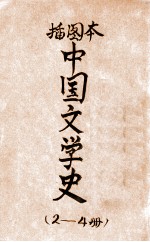 插图本
中国文学史
(2—4册)